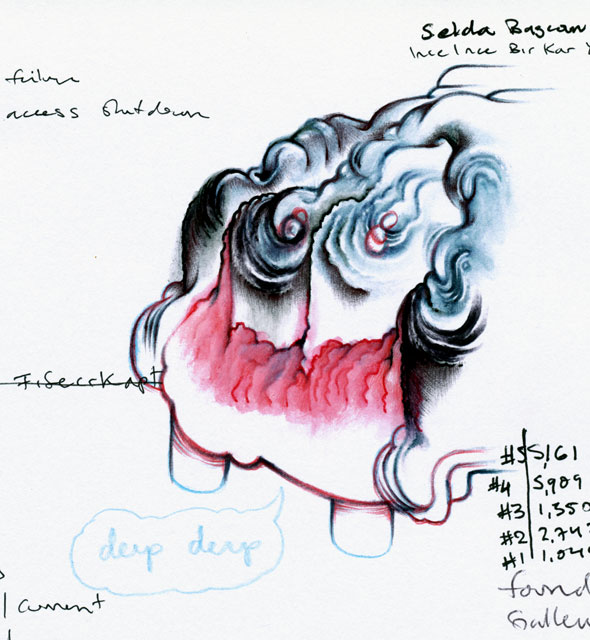 Selda Bagcan
Ince Ince Bir Kar
failure
access shutdown
#5 5,161
#4 5,989
#3 1,350
#2 2,743
#1 1,04
derp derp
current
found
Galler